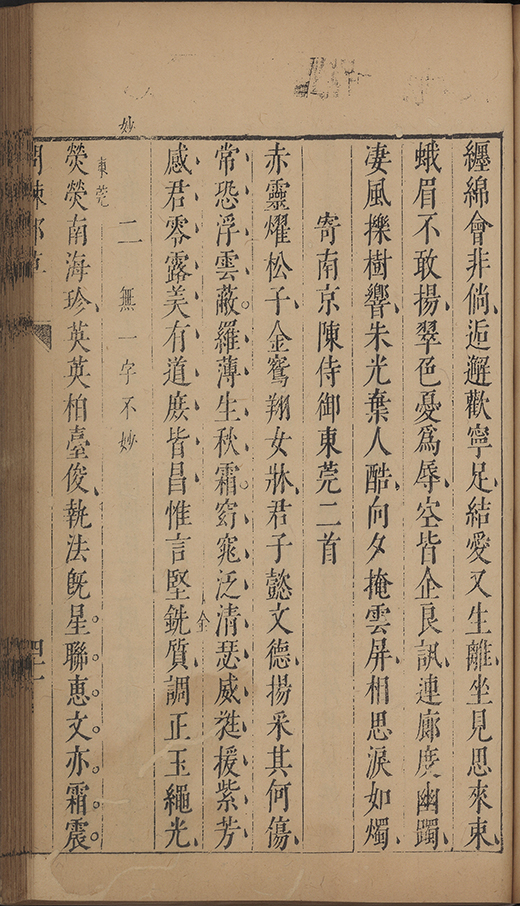 纏綿會非倘逅邂歡寧足結愛又生離坐見思來東
蛾眉不敢揚翠色憂為辱空皆企良訊連廊度幽躅
凄風摖樹響朱光棄人酷向夕掩雲屏相思淚如燭
寄南京陳侍御東莞二首
赤靈燿松子金鴛翔女牀君子懿文德揚采其何傷
常恐浮雲蔽羅薄生秋霜窈窕泛清瑟威蕤援紫芳
感君零露美有道庶皆昌惟言堅銑質調正玉繩光
金
妙
二
無一字不妙
東莞
熒熒南海珍英英柏臺俊執法旣星聯惠文亦霜震